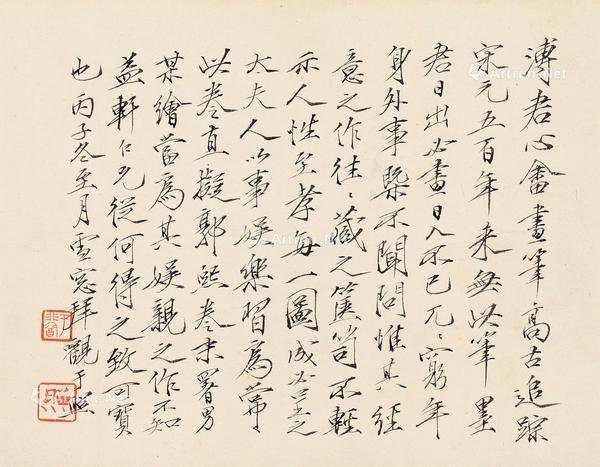 溥君心畬畫筆高古追踪
宋元五百年來無此筆墨
君日出必畫日入不已兀〻窮年
身外事槩不聞問惟其經
意之作往〻藏之篋笥不輕
示人性至孝每一圖成必呈之
太夫人以事娛樂習為常
此卷直擬郭熙卷末署男
某繪當為其娛親之作不知
益軒仁兄從何得之致可寶
也丙子冬至月雪窗拜觀于照
Artron.Net